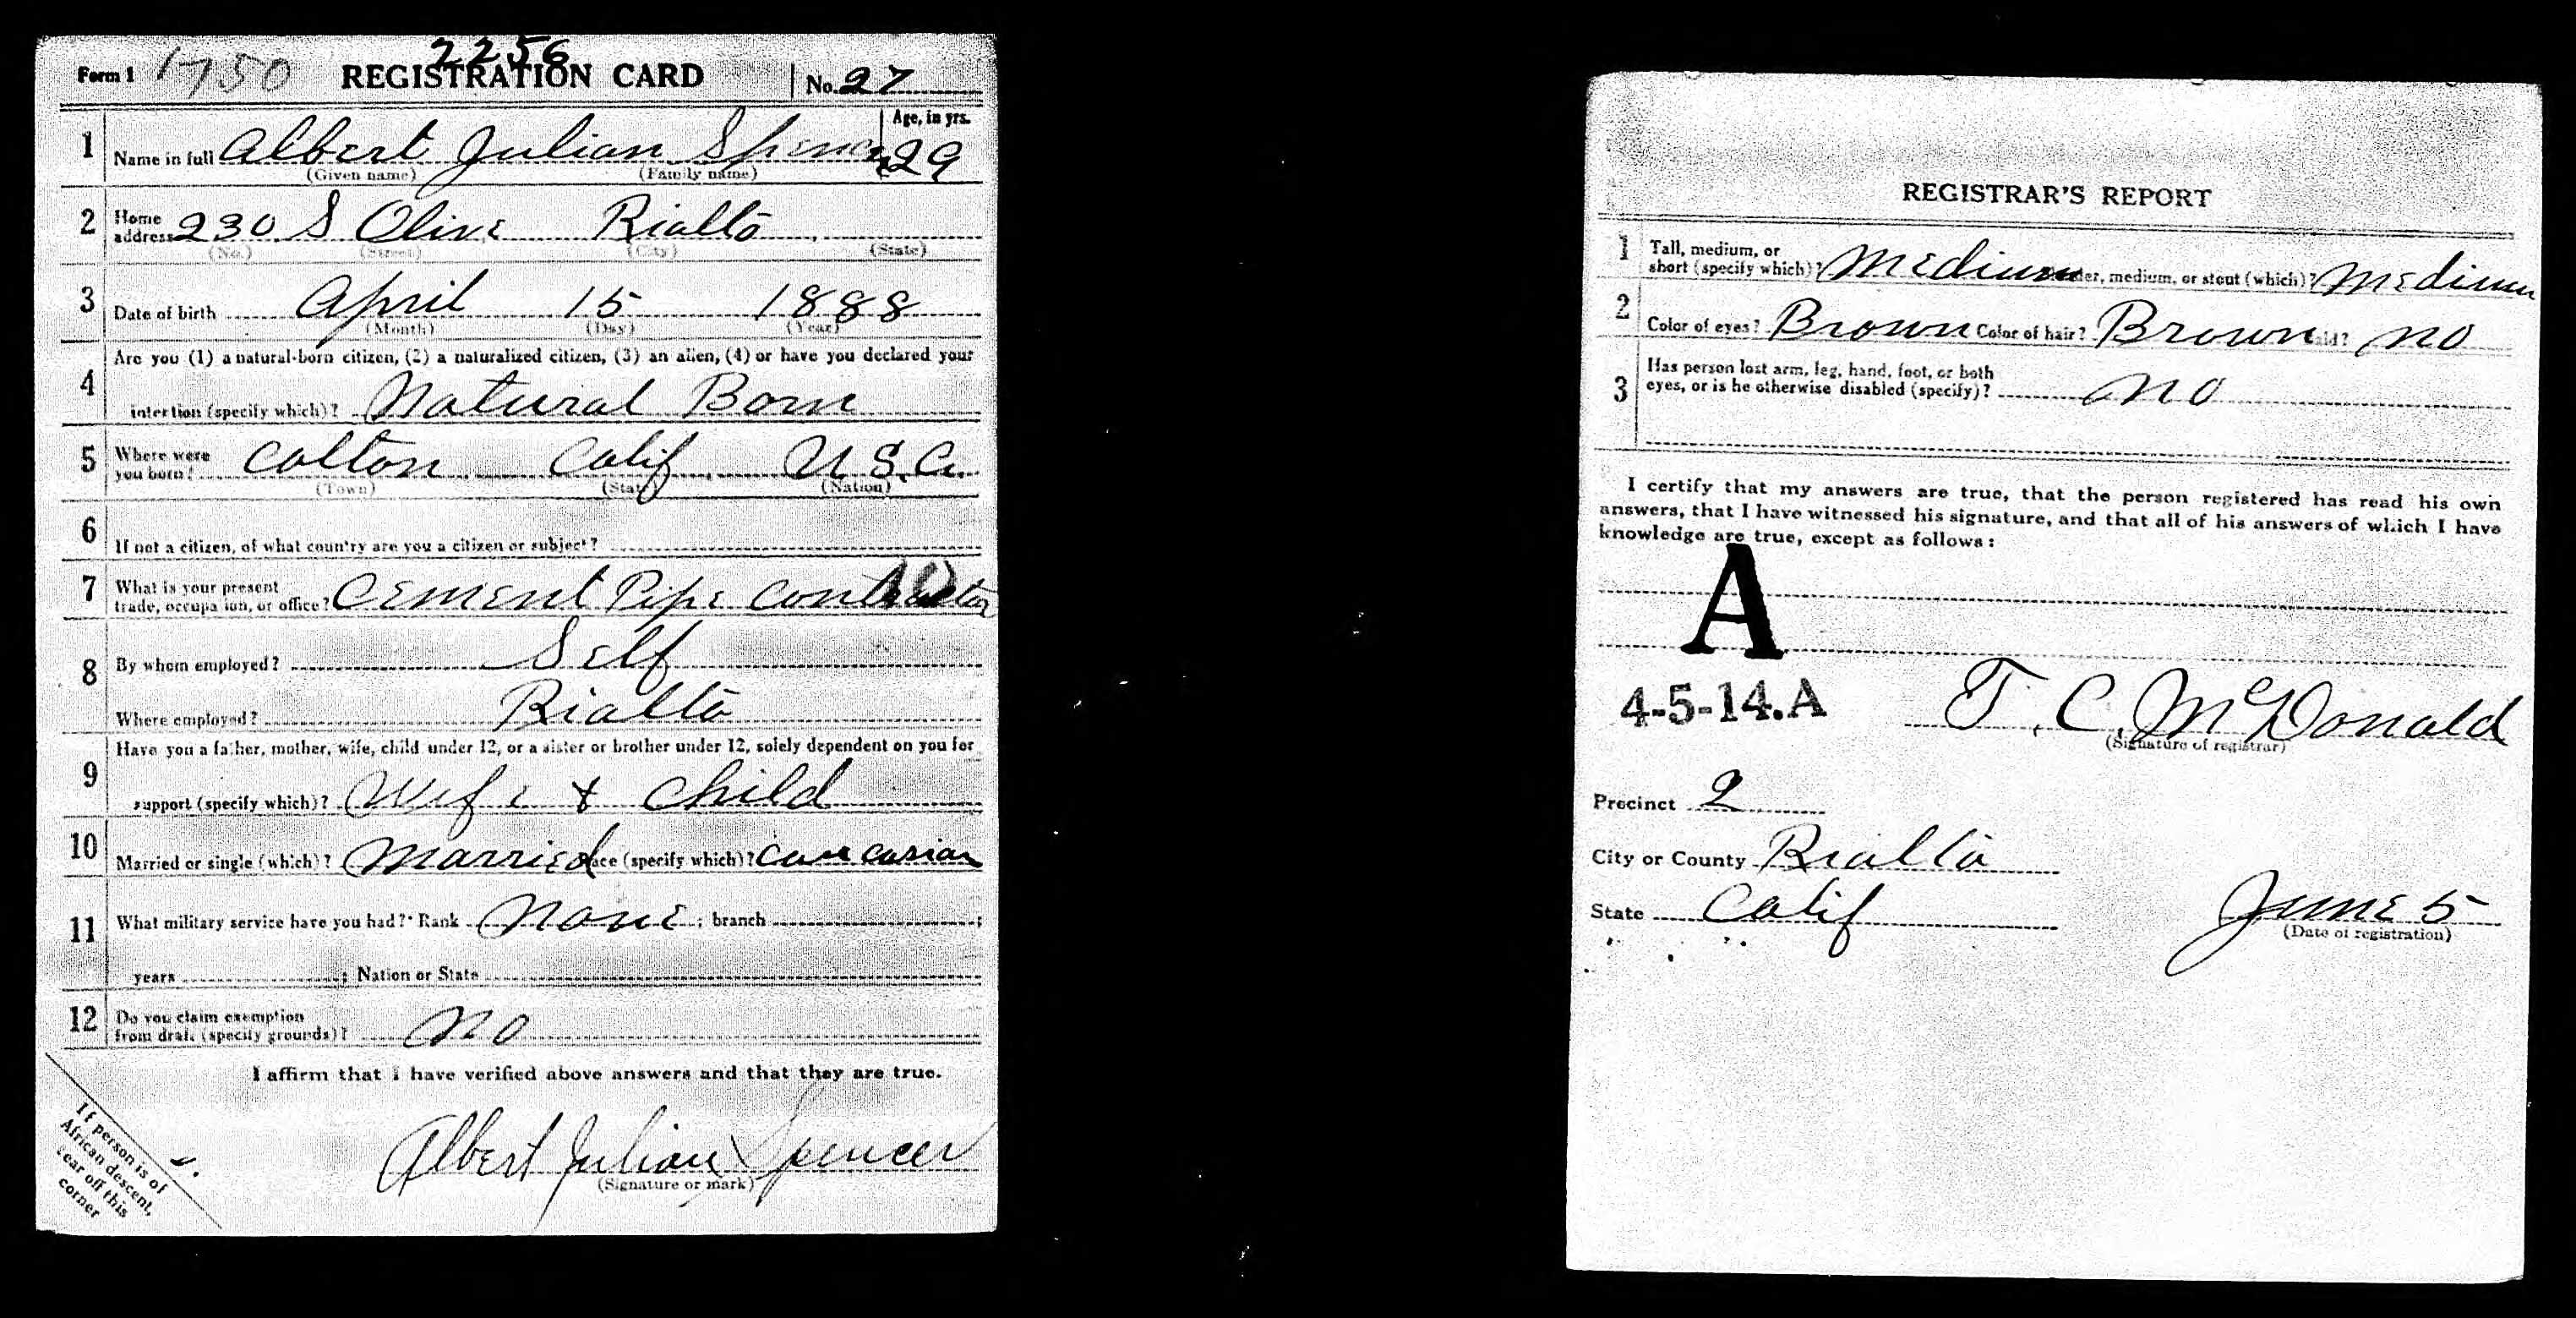 2256
Form 1 1750 REGISTRATION CARD No. 27
1 Name in full Albert Julian Spencer Age, in yrs. 29
(Given name) (Family name)
2 Home address 230 S Olive Rialto
(No.) (Street) (City) (State)
3 Date of birth April 15 1888
(Month) (Day) (Year)
4 Are you (1) a natural-born citizen, (2) a naturalized citizen, (3) an alien, (4) or have you declared your
intention (specify which)? Natural Born
5 Where were you born? Colton Calif U.S.A.
(Town) (State) (Nation)
6 If not a citizen, of what country are you a citizen or subject?
7 What is your present trade, occupation, or office? Cement Pipe Contractor
8 By whom employed? Self
Where employed? Rialto
9 Have you a father, mother, wife, child under 12, or a sister or brother under 12, solely dependent on you for
support (specify which)? Wife & Child
10 Married or single (which)? Married Race (specify which)? Caucasian
11 What military service have you had? Rank None ; branch ;
years ; Nation or State
12 Do you claim exemption from draft (specify grounds)? No
I affirm that I have verified above answers and that they are true.
Albert Julian Spencer
(Signature or mark)
If person is of
African descent,
tear off this
corner
REGISTRAR'S REPORT
1 Tall, medium, or short (specify which)? Medium Slender, medium, or stout (which)? Medium
2 Color of eyes? Brown Color of hair? Brown Bald? No
3 Has person lost arm, leg, hand, foot, or both
eyes, or is he otherwise disabled (specify)? No
I certify that my answers are true, that the person registered has read his own
answers, that I have witnessed his signature, and that all of his answers of which I have
knowledge are true, except as follows:
A
4-5-14.A T. C. McDonald
(Signature of registrar)
Precinct 2
City or County Rialto
State Calif June 5
(Date of registration)